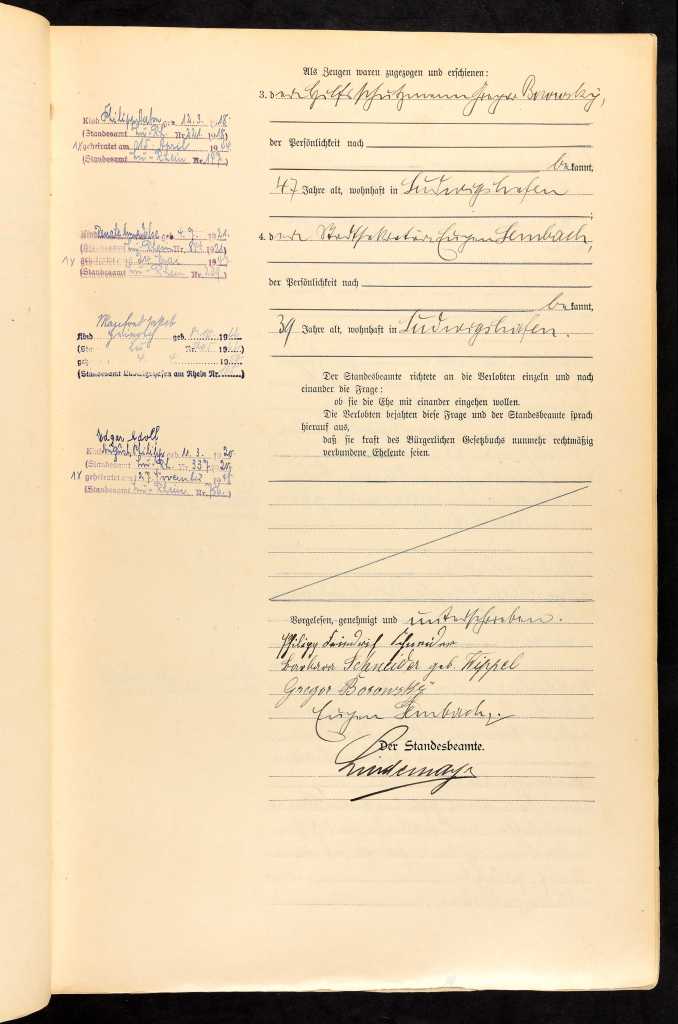 Kind Philipp geb. 12.3. 1918.
(Standesamt Lu-Rh. Nr. 221. 1918)
1x geheiratet am 15 April 19
(Standesamt Lu-Rhein Nr. 147.)
Kind geb. 4. 9. 1921.
(Standesamt Lu-Rhein Nr. 1921)
1x Mai 19
(Standesamt Lu-Rhein Nr.
Manfred Jakob
Kind Heinrich geb. 19
Nr.
(Standesamt Ludwigshafen am Rhein Nr.
Edgar Adolf
Kind Philipp geb. 11. 3. 1920.
(Standesamt Lu-Rh. Nr. 337. 20.)
1x geheiratet am 27 November 19
(Standesamt Lu-Rhein Nr.
Als Zeugen waren zugezogen und erschienen:
3. der Hilfsschutzmann Gregor Borowsky,
der Persönlichkeit nach
bekannt,
47 Jahre alt, wohnhaft in Ludwigshafen
;
4. der Stadtsekretär Eugen Lembach,
der Persönlichkeit nach
bekannt,
39 Jahre alt, wohnhaft in Ludwigshafen.
Der Standesbeamte richtete an die Verlobten einzeln und nach
einander die Frage:
ob sie die Ehe mit einander eingehen wollen.
Die Verlobten bejahten diese Frage und der Standesbeamte sprach
hierauf aus,
daß sie kraft des Bürgerlichen Gesetzbuchs nunmehr rechtmäßig
verbundene Eheleute seien.
Vorgelesen, genehmigt und unterschrieben.
Philipp Friedrich Schneider
Barbara Schneider geb. Wippel
Gregor Borowsky
Eugen Lembach.
Der Standesbeamte.
Lindemayr